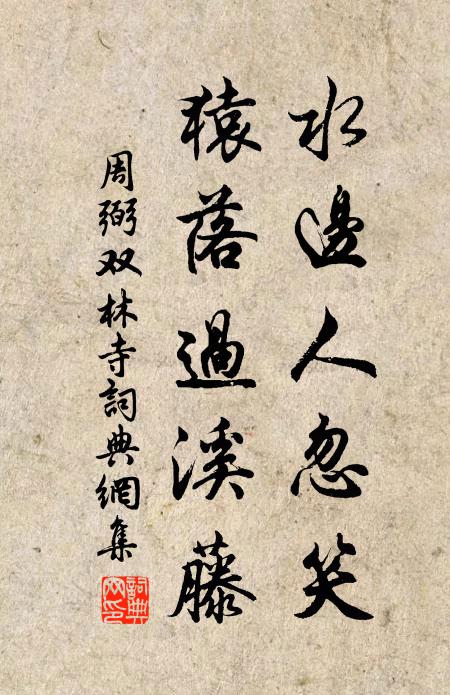 水邊人忽笑
猿落過溪藤
周弼双林寺詞典網集
詞典网印